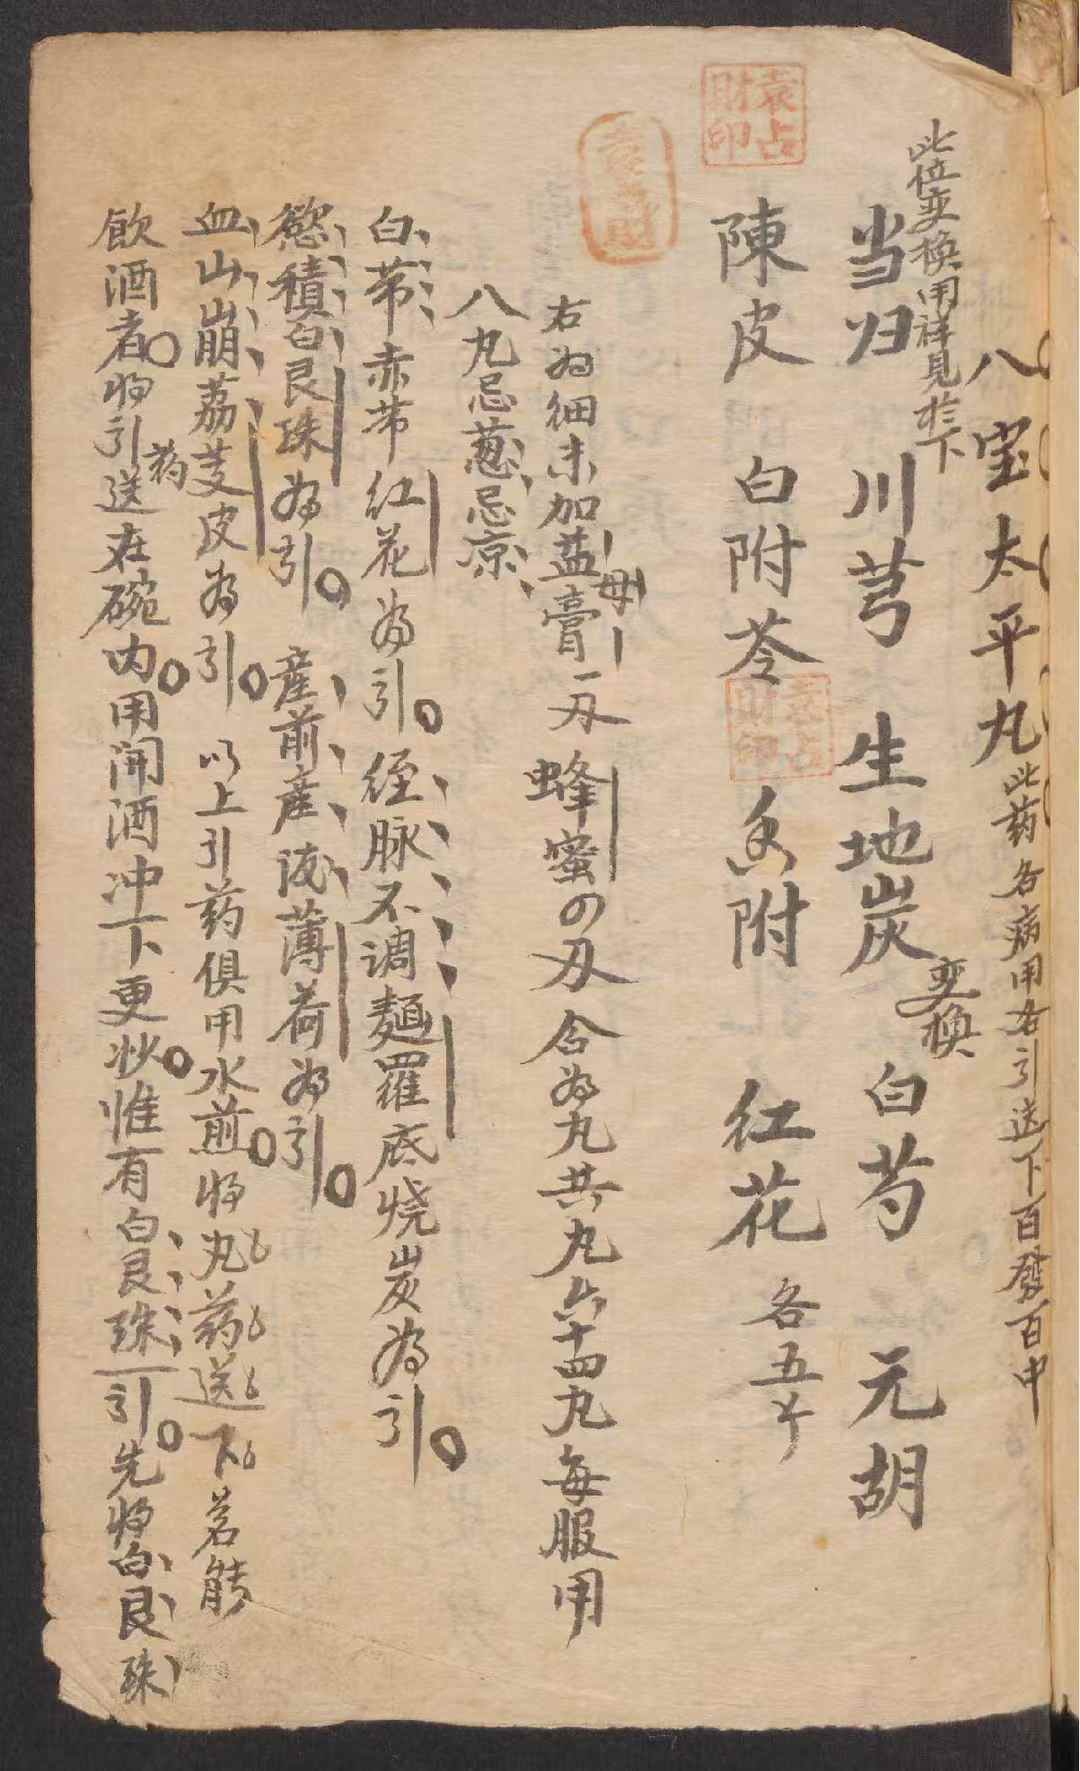 八宝太平丸此药各病用各引送下百發百中
此位变换用詳見於下
当归 川芎 生地炭 白芍 元胡
变换
陳皮 白附苓 香附 红花 各五个
袁占財印
袁占財印
右为细末加益母膏一刄蜂蜜の刄合为丸共丸六十四丸每服用
八丸忌葱忌凉
白带赤带红花为引 经脉不调麵羅底烧炭为引
慾積白艮珠为引 産前産後薄荷为引
血山崩荔芰皮为引 以上引药俱用水煎将丸药送下若能
飲酒者将引药送在碗内用開酒冲下更妙惟有白艮珠引先将白艮珠